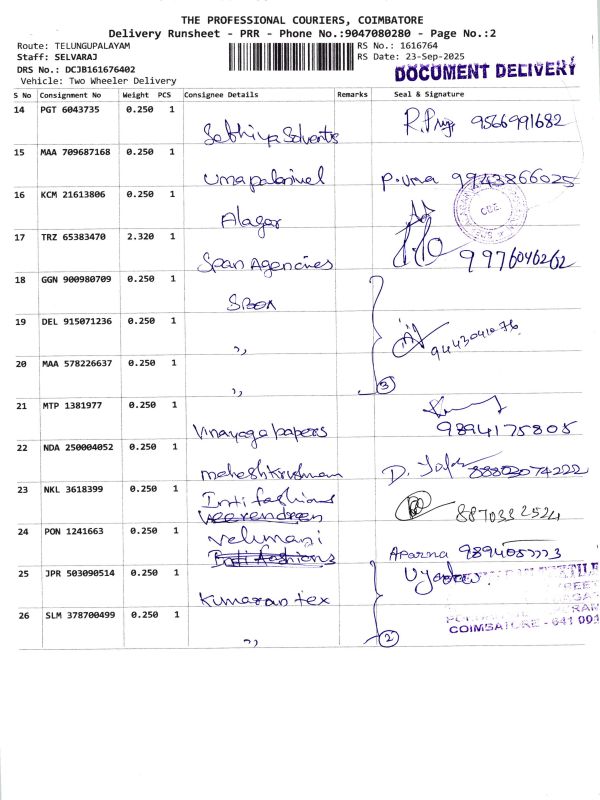 THE PROFESSIONAL COURIERS, COIMBATORE
Delivery Runsheet - PRR - Phone No.:9047080280 - Page No.:2
Route: TELUNGUPALAYAM
Staff: SELVARAJ
DRS No.: DCJB161676402
Vehicle: Two Wheeler Delivery
RS No.: 1616764
RS Date: 23-Sep-2025
DOCUMENT DELIVERY
S No Consignment No Weight PCS Consignee Details Remarks Seal & Signature
14 PGT 6043735 0.250 1
9566991682
15 MAA 709687168 0.250 1
Umapalanivel P. Uma 9943866025
16 KCM 21613806 0.250 1
Alagar
CBE
17 TRZ 65383470 2.320 1
Span Agencies 9976046262
18 GGN 900980709 0.250 1
19 DEL 915071236 0.250 1
,, 9443041076
20 MAA 578226637 0.250 1
,, 3
21 MTP 1381977 0.250 1
Vinayaga papers 9894175805
22 NDA 250004052 0.250 1
D.
23 NKL 3618399 0.250 1
Inti fashions
Veerendren
24 PON 1241663 0.250 1
Velumani
Inti fashions Aparna
25 JPR 503090514 0.250 1
Kumaran tex
26 SLM 378700499 0.250 1
,, 2
COIMBATORE - 641 001